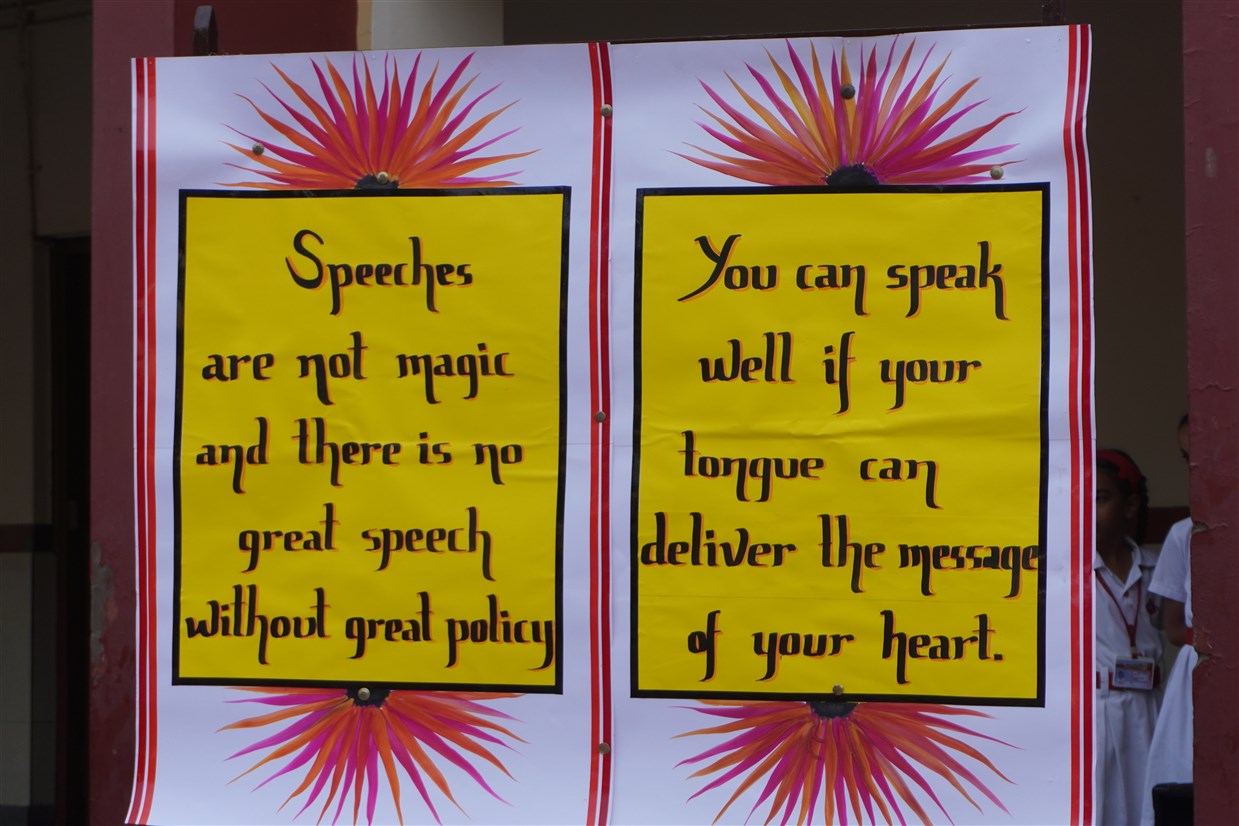 Speeches
are not magic
and there is no
great speech
without great policy
You can speak
well if your
tongue can
deliver the message
of your heart.